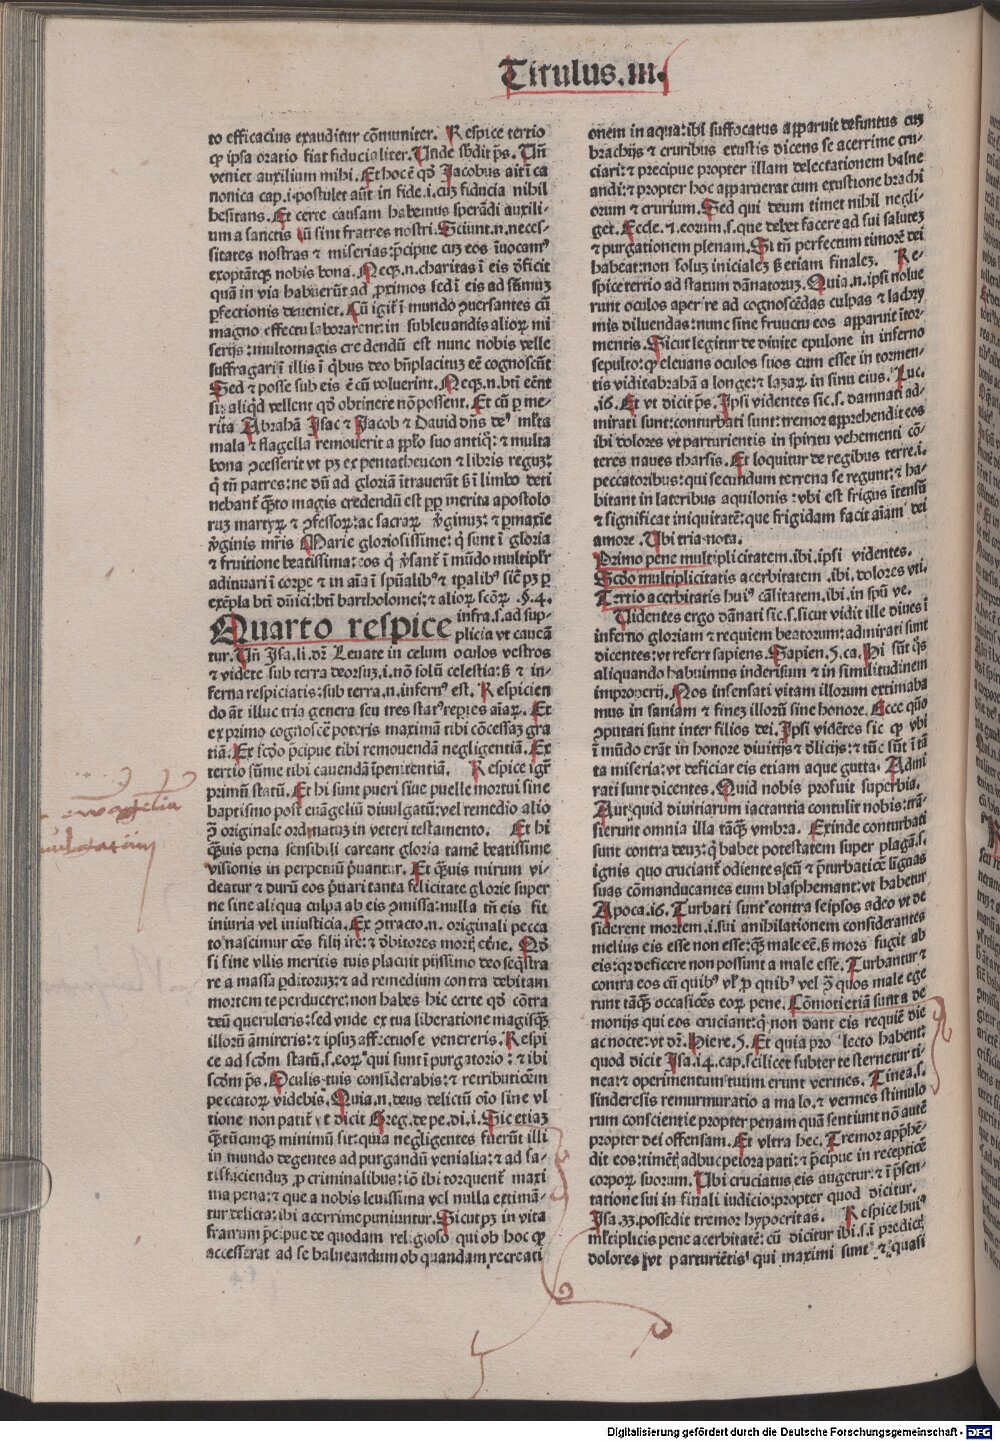 Titulus .III.
to efficacius exauditur cōmuniter. Respice tertio
ꝙ ipsa oratio fiat fiducialiter. Unde sbdit p̄s. Un̄
veniet auxilium mihi. Et hoc ē qḋ Jacobus ait ī ca
nonica cap. i. postulet aūt in fide .i. cuꝫ fiducia nihil
hesitans. Et certe causam habemus sperādi auxili-
um a sanctis cū sint fratres nostri. Sciunt .n. neces-
sitates nostras ⁊ miserias: p̄cipue cuꝫ eos īuocamꝰ
exoptātqꝫ nobis bona. Neqꝫ .n. charitas ī eis dēficit
quā in via habuerūt ad ꝓximos sed ī eis ad sūmuꝫ
ꝑfectionis deueniet. Cū igit̄ ī mundo ꝯuersantes cū
magno effectu laborarent: in subleuandis alioꝝ mi
serijs: multomagis credendū est nunc nobis velle
suffragari ī illis ī q̄bus deo bn̄placituꝫ eē cognoscūt
Sed ⁊ posse sub eis ē cū voluerint. Neqꝫ .n. bt̄i eēnt
si aliq̄d vellent qḋ obtinere nō possent. Et cū ꝑ me-
rita Abrahā Isac ⁊ Jacob ⁊ Dauid dn̄s deꝰ ml̄ta
mala ⁊ flagella remouerit a pplo suo antiq̄: ⁊ multa
bona ꝯcesserit vt pꝫ ex pentatheucon ⁊ libris reguꝫ:
q̄ tn̄ patres: ne dū ad gloriā ītrauerāt sꝫ ī limbo deti
nebant̄ q̄to magis credendū est ꝓpꝑ merita apostolo
ruꝫ martyꝝ ⁊ ꝯfessoꝝ: ac sacraꝝ v̄ginuꝫ: ⁊ ꝑmaxīe
v̄ginis mr̄is Marie gloriosissime: q̄ sunt ī gloria
⁊ fruitione beatissima: eos q̄ v̄sant̄ ī mūdo multiplr̄
adiuuari ī corpe ⁊ in aīa ī spūalibꝰ ⁊ tp̄alibꝰ sic̄ pꝫ ꝑ
exēpla bt̄i dn̄ici: bt̄i bartholomei: ⁊ alioꝝ scōꝝ. §.4.
Quarto respice infra .s. ad sup-
plicia vt caueā
tur. Un̄ Isa. li. dr̄. Leuate in celum oculos vestros
⁊ videte sub terra deorsuꝫ .i. nō solū celestia: sꝫ ⁊ in-
ferna respiciatis: sub terra .n. infernꝰ est. Respicien
do āt illuc tria genera seu tres statꝰ repies aīaꝝ. Et
ex primo cognoscē poteris maximā tibi cōcessaꝫ gra
tiā. Et scd̄o p̄cipue tibi remouendā negligentiā. Ex
tertio sūme tibi cauendā īpenitentiā. Respice igr̄
primū statū. Et hi sunt pueri siue puelle mortui sine
baptismo post euāgeliū diuulgatū: vel remedio alio
ꝯ̄ originale ordinatuꝫ in veteri testamento. Et hi
q̄uis pena sensibili careant gloria tamē beatissime
visionis in perpetuū p̄uantur. Et q̄uis mirum vi-
deatur ⁊ durū eos p̄uari tanta felicitate glorie super
ne sine aliqua culpa ab eis ꝯmissa: nulla tn̄ eis fit
iniuria vel iniusticia. Ex ꝯtracto .n. originali pecca
to nascimur oēs filij ire: ⁊ debitores mortj eterne. Qḋ
si sine vllis meritis tuis placuit pijssimo deo seq̄stra
re a massa ꝑditoruꝫ: ⁊ ad remedium contra debitam
mortem te perducere: non habes hic certe qḋ cōtra
deū queruleris: sed vnde ex tua liberatione magisqꝫ
illorū āmireris: ⁊ ipsuꝫ affectuose venereris. Respi
ce ad scd̄m statū .s. eoꝝ qui sunt ī purgatorio: ⁊ ibi
scd̄m p̄s. Oculis tuis considerabis: ⁊ retributiōem
peccatoꝝ videbis. Quia .n. deus delictū oīo sine vl
tione non patit̄ vt dicit Greg. de pe. di. i. Sic etiaꝫ
q̄tūcumqꝫ minimū sit: quia negligentes fuerūt illi
in mundo degentes ad purgandū venialia: ⁊ ad sa-
tisfacienduꝫ ꝓ criminalibus: iō ibi torquent̄ maxi
ma pena: ⁊ que a nobis leuissima vel nulla extimā-
tur delicta: ibi acerrime puniuntur. Sicut pꝫ in vita
fratrum p̄cipue de quodam religioso qui ob hoc ꝙ
accesserat ad se balneandum ob quandam recreati
onem in aqua: ibi suffocatus apparuit defuntus cuꝫ
brachijs ⁊ cruribus exustis dicens se acerrime cru-
ciari: ⁊ precipue propter illam delectationem balne
andi: ⁊ propter hoc apparuerat cum exustione brachi
orum ⁊ crurium. Sed qui deum timet nihil negli-
get. Eccle. 7. eorum .s. que debet facere ad sui salutez
⁊ purgationem plenam. Si tn̄ perfectum timorē dei
habeat: non soluꝫ inicialeꝫ sꝫ etiam finalez. Re-
spice tertio ad statum dānatoruꝫ. Quia .n. ipsi nolue
runt oculos aperire ad cognoscēdas culpas ⁊ lachry
mis diluendas: nunc sine fructu eos apparuit ītor-
mentis. Sicut legitur de diuite epulone in inferno
sepulto: ꝙ eleuans oculos suos cum esset in tormen-
tis vidit abrahā a longe: ⁊ lazaꝝ in sinu eius. Luc.
.16. Et vt dicit p̄s. Ipsi videntes sic .s. damnati ad-
mirati sunt: conturbati sunt: tremor apprehendit eos
ibi dolores vt parturientis in spiritu vehementi cō-
teres naues tharsis. Et loquitur de regibus terre .i.
peccatoribus: qui secundum terrena se regunt: ⁊ ha-
bitant in lateribus aquilonis: vbi est frigus ītensū
⁊ significat iniquitatē: que frigidam facit aīam dei
amore. Ubi tria nota.
Primo pene multiplicitatem .ibi. ipsi videntes.
Scd̄o multiplicitatis acerbitatem .ibi. dolores vti.
Tertio acerbitatis huiꝰ cālitatem .ibi. in spū ve.
Videntes ergo dānati sic .s. sicut vidit ille diues ī
inferno gloriam ⁊ requiem beatorum: admirati sunt
dicentes: vt refert sapiens. Sapien. 5. ca. Hi sūt q̄s
aliquando habuimus inderisum ⁊ in similitudinem
improperij. Nos insensati vitam illorum extimaba
mus insaniam ⁊ finez illorū sine honore. Ecce quō
ꝯputati sunt inter filios dei. Ipsi vidētes sic ꝙ vbi
ī mūdo erāt in honore diuitijs ⁊ dēlicijs: ⁊ tūc sūt ī tā
ta miseria: vt deficiat eis etiam aque gutta. Admi
rati sunt dicentes. Quid nobis profuit superbia.
Aut quid diuitiarum iactantia contulit nobis: trā-
sierunt omnia illa tāqꝫ vmbra. Exinde conturbati
sunt contra deuꝫ: q̄ habet potestatem super plagā .s.
ignis quo cruciant̄ odientes eū ⁊ p̄turbatiōe līguas
suas cōmanducantes eum blasphemant: vt habetur
Apoca. 16. Turbati sunt contra seipsos adeo vt de
siderent mortem .i. sui anihilationem considerantes
melius eis esse non esse: q̄ male eē. sꝫ mors fugit ab
eis: qr̄ deficere non possunt a male esse. Turbantur ⁊
contra eos cū quibꝰ vl̄ ꝓ quibꝰ vel ꝯ̄ quos male ege
runt tāqꝫ occasiōes eoꝝ pene. Cōmoti etiā sunt a de
monijs qui eos cruciant: q̄ non dant eis requiē die
ac nocte: vt dr̄. Hiere. 5. Et quia pro lecto habent:
quod dicit Isa. i4. cap. scilicet subter te sternetur ti
nea: ⁊ operimentum tuum erunt vermes. Tinea .s.
sinderesis remurmuratio a malo. ⁊ vermes stimulo
rum conscientie propter penam quā sentiunt nō autē
propter dei offensam. Et vltra hec. Tremor appḣē-
dit eos: timēt̄ adhuc peiora pati: ⁊ p̄cipue in receptiōe
corpoꝝ suorum. Ubi cruciatus eis augetur: ⁊ ī p̄sen-
tatione sui in finali iudicio: propter quod dicitur.
Isa. 33. possedit tremor hypocritas. Respice huiꝰ
ml̄tiplicis pene acerbitatē: cū dicitur ibi .s. ī predict̄
dolores vt parturiētisꝰ qui maximi sunt ⁊ quasi
Digitalisierung gefördert durch die Deutsche Forschungsgemeinschaft - DFG